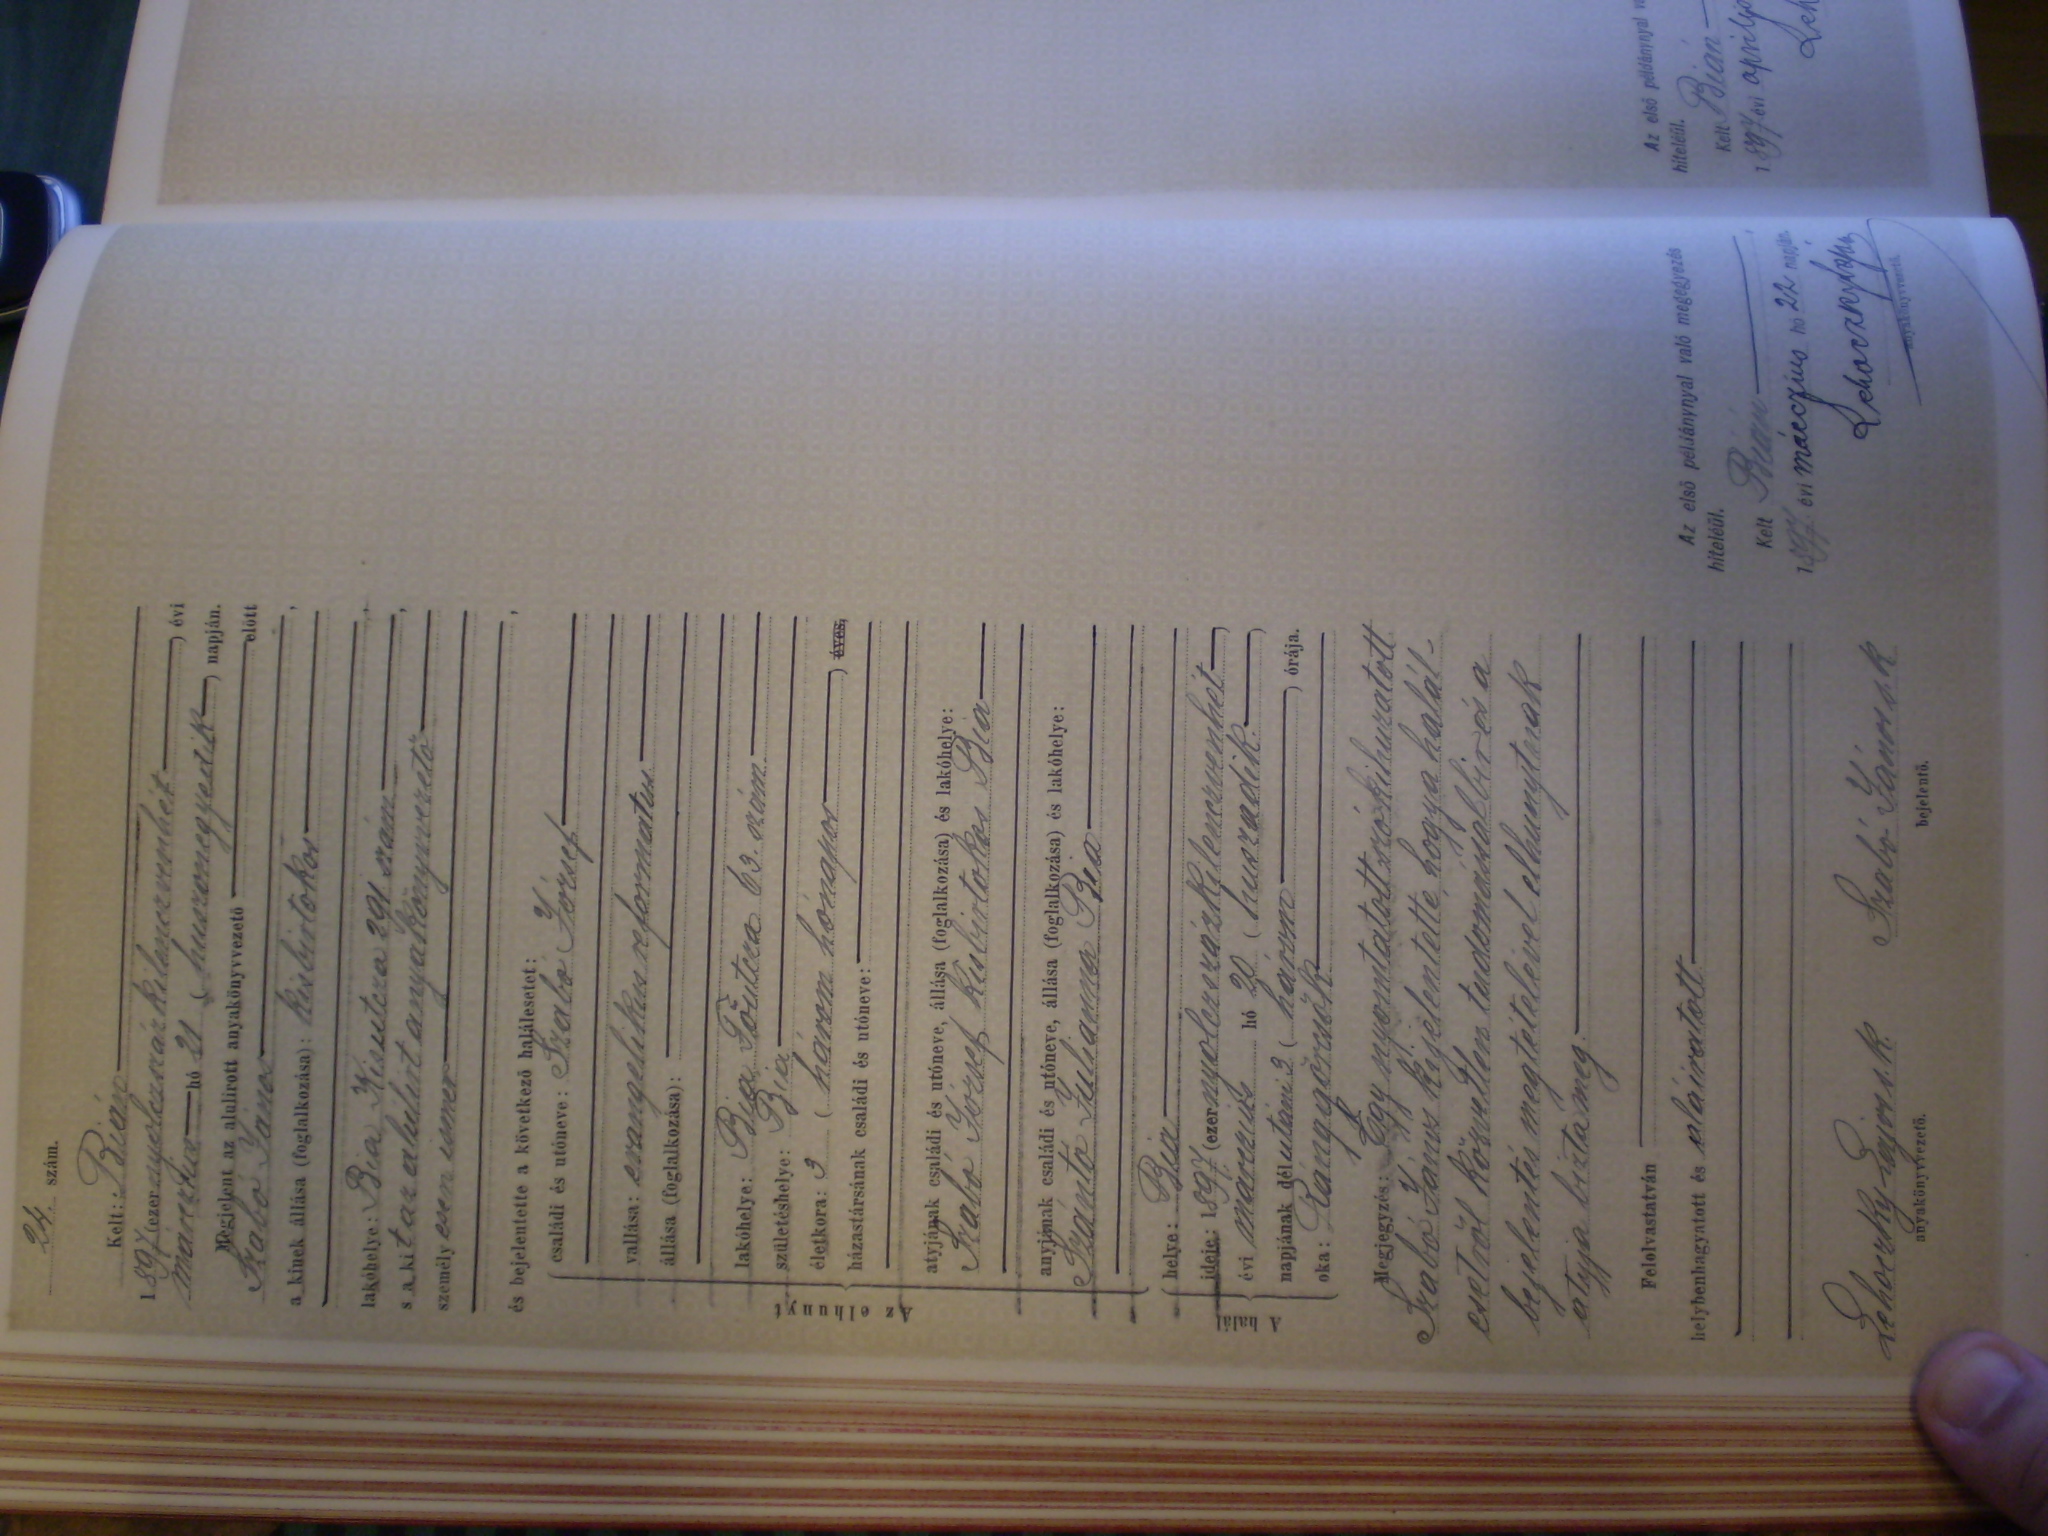 24. szám.
Kelt: Bián
1897 (ezernyolczszázkilenczvenhét) évi
márczius hó 21 (huszonegyedik) napján.
Megjelent az alulirott anyakönyvvezető előtt
Szabó János
a kinek állása (foglalkozása): kisbirtokos,
lakóhelye: Bia Kisutcza 291 szám,
s a kit az alulirt anyakönyvvezető,
személyesen ismer
és bejelentette a következő halálesetet:
Az elhunyt
családi és utóneve: Szabó József
vallása: evangelikus reformatus
állása (foglalkozása):
lakóhelye: Bia Főutcza 63. szám.
születéshelye: Bia
életkora: 3 (három hónapos) éves,
házastársának családi és utóneve:
atyjának családi és utóneve, állása (foglalkozása) és lakóhelye:
Szabó József kisbirtokos Bia
anyjának családi és utóneve, állása (foglalkozása) és lakóhelye:
Szántó Julianna Bia
A halál
helye: Bia
ideje: 1897 (ezernyolczszázkilenczvenhét)
évi marczius hó 20 (huszadik)
napjának délutáni 3 (három) órája.
oka: Rángógörcsök
Megjegyzés: Egy nyomtatott szó kihuzatott
Szabó János kijelentette, hogy a halál-
esetről közvetlen tudomással bir és a
bejelentés megtételével elhunytnak
atyja bizta meg.
Felolvastatván
helybenhagyatott és aláiratott
Lehoczky Lajos s. k.
anyakönyvvezető.
Szabó János s k
bejelentő.
Az első példánynyal való megegyezés
hiteléül.
Kelt Bián
1897 évi márczius hó 22 napján.
Lehoczky
anyakönyvvezető.
Az első példánynyal
hiteléül.
Kelt Bián
1897 évi április